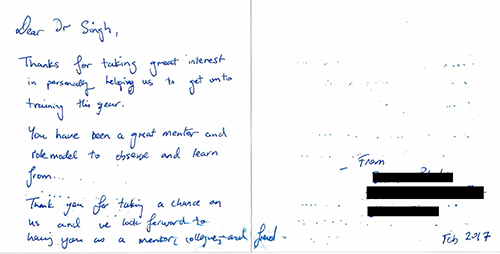 Dear Dr Singh,
Thanks for taking great interest
in personally helping us to get onto
training this year.
You have been a great mentor and
rolemodel to observe and learn
from...
Thank you for taking a chance on
us and we look forward to
having you as a mentor, collegue, and friend.
– From
Feb 2017